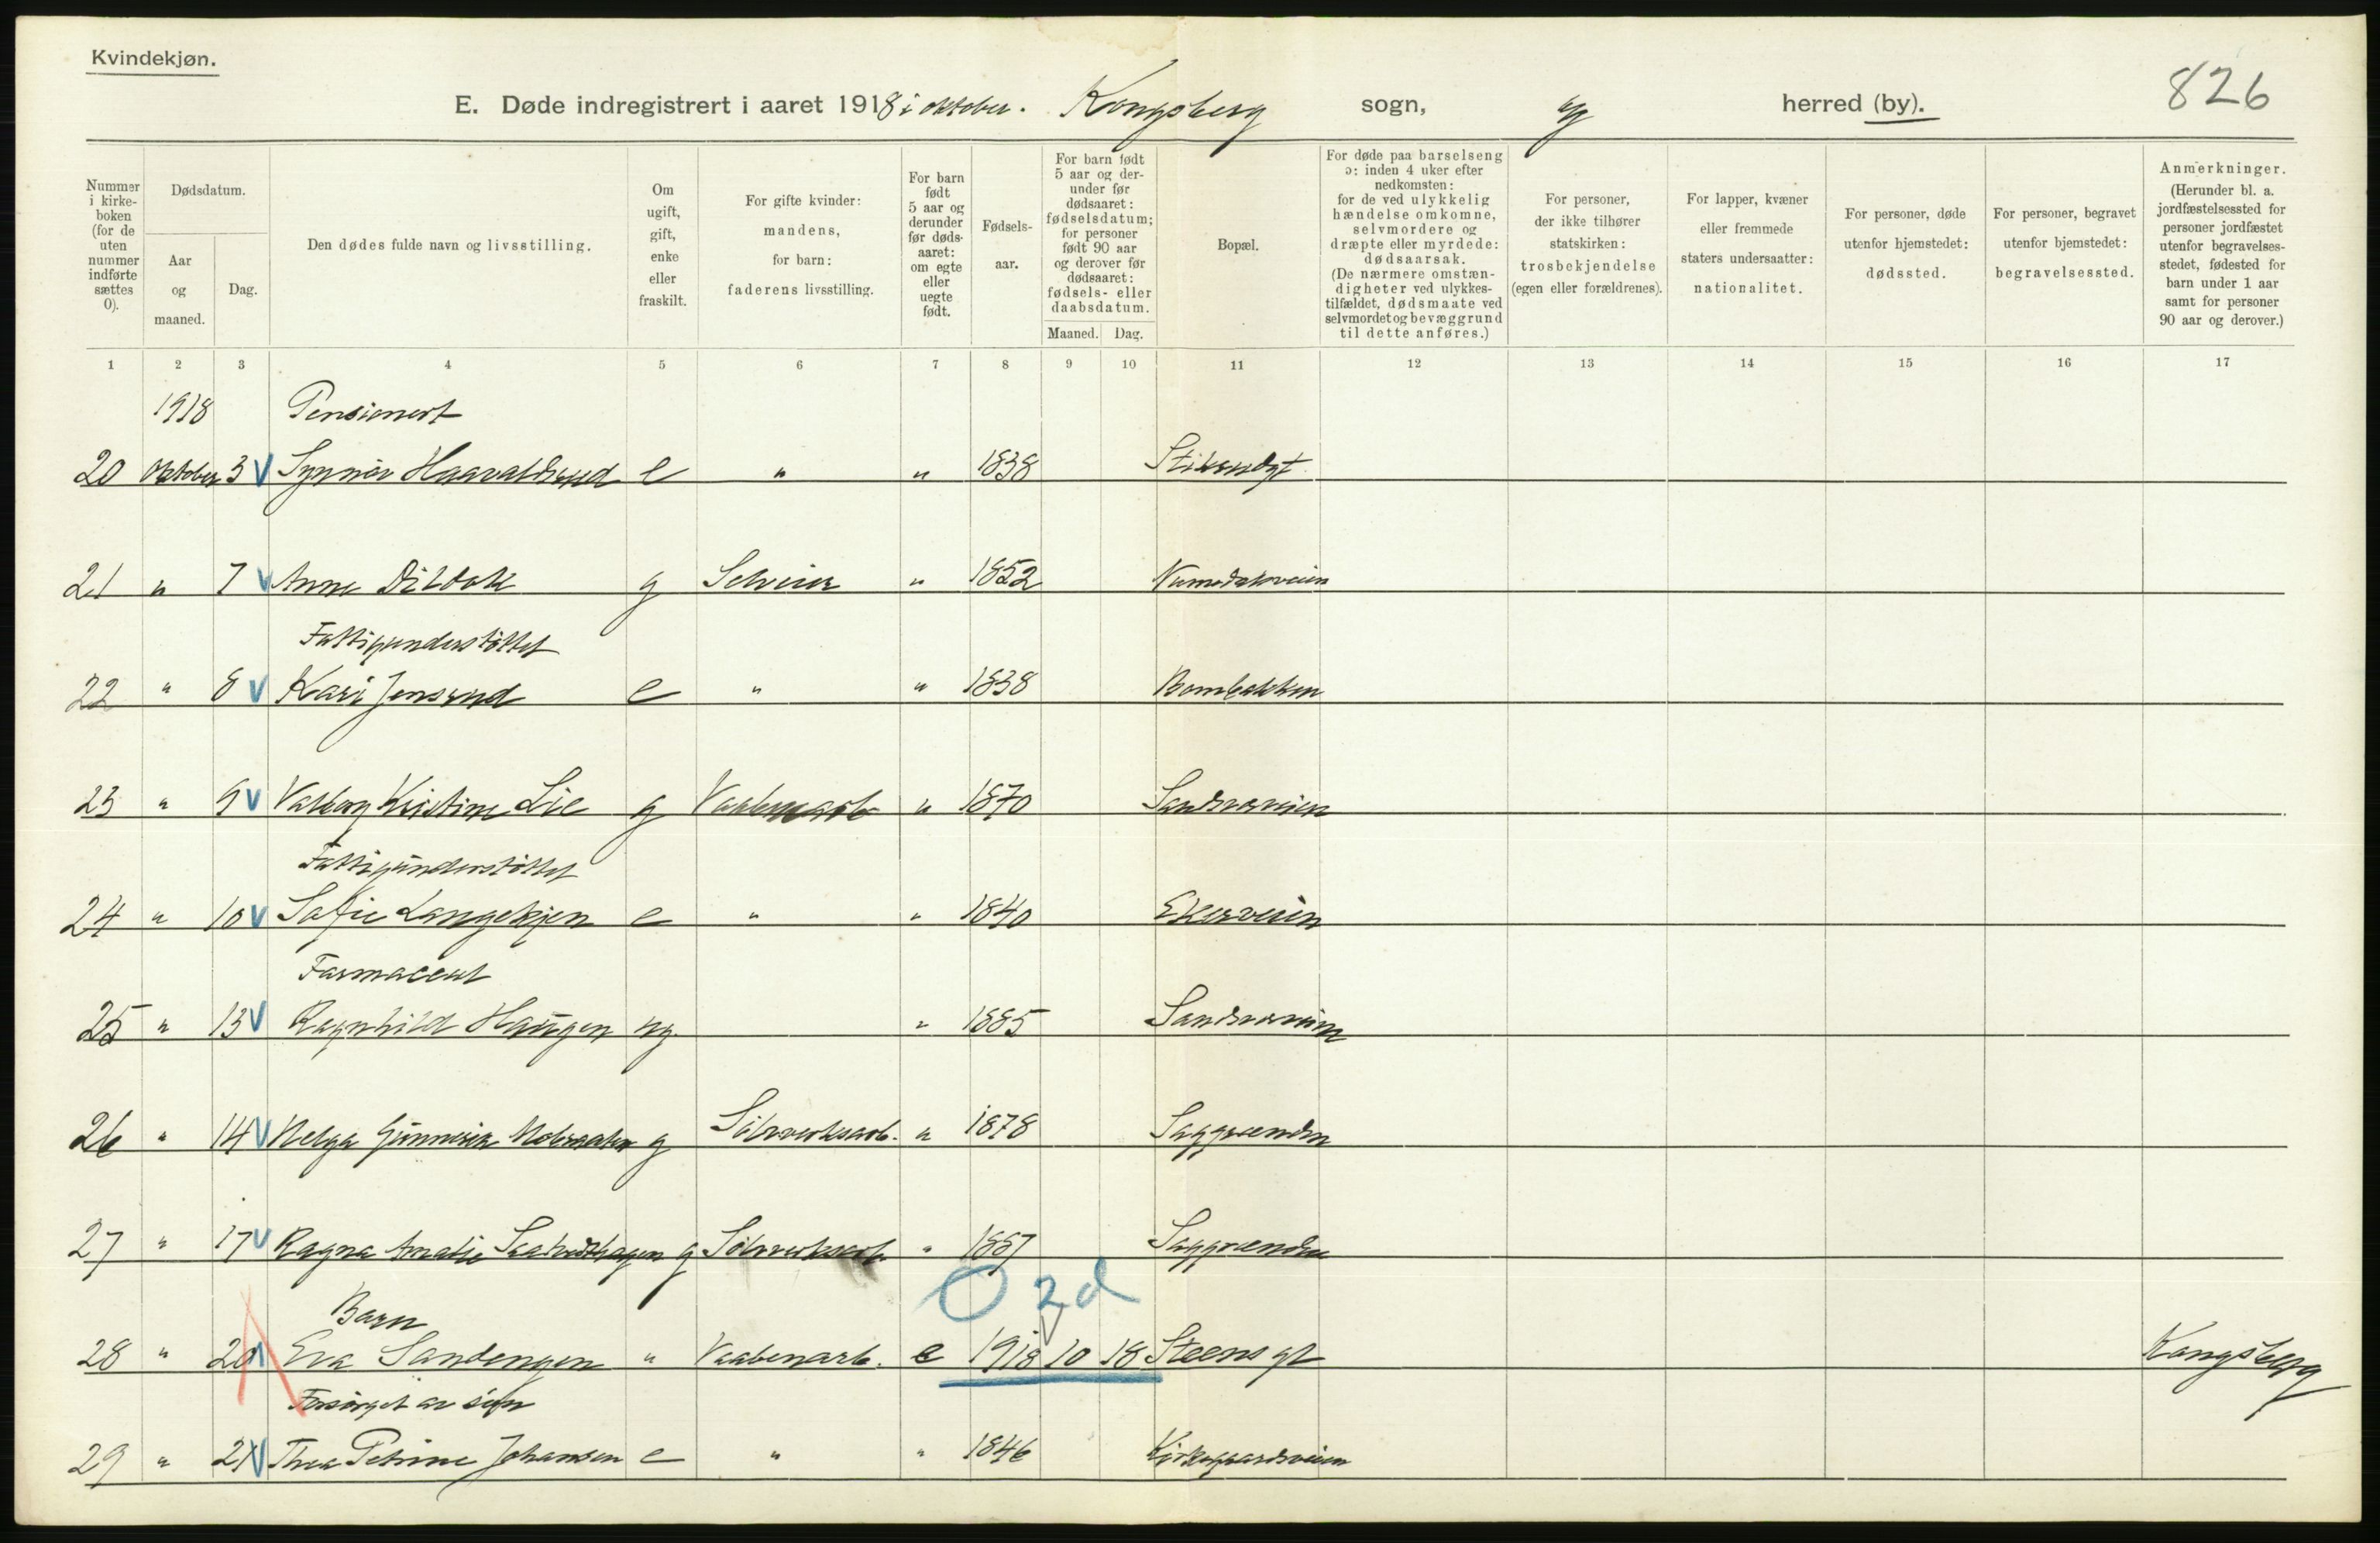 Kvindekjøn.
826
E. Døde indregistrert i aaret 1918 i oktober. Kongsberg sogn, by herred (by).
Nummer i kirke- boken (for de uten nummer indførte sættes 0).
Dødsdatum.
Aar og maaned.
Dag.
Den dødes fulde navn og livsstilling.
Om ugift, gift, enke eller fraskilt.
For gifte kvinder: mandens, for barn: faderens livsstilling.
For barn født 5 aar og derunder før døds- aaret: om egte eller uegte født.
Fødsels- aar.
For barn født 5 aar og der- under før dødsaaret: fødselsdatum; for personer født 90 aar og derover før dødsaaret: fødsels- eller daabsdatum.
Maaned. Dag.
Bopæl.
For døde paa barselseng ɔ: inden 4 uker efter nedkomsten: for de ved ulykkelig hændelse omkomne, selvmordere og dræpte eller myrdede: dødsaarsak. (De nærmere omstæn- digheter ved ulykkes- tilfældet, dødsmaate ved selvmordet og bevæggrund til dette anføres.)
For personer, der ikke tilhører statskirken: trosbekjendelse (egen eller forældrenes).
For lapper, kvæner eller fremmede staters undersaatter: nationalitet.
For personer, døde utenfor hjemstedet: dødssted.
For personer, begravet utenfor hjemstedet: begravelsessted.
Anmerkninger. (Herunder bl. a. jordfæstelsessted for personer jordfæstet utenfor begravelses- stedet, fødested for barn under 1 aar samt for personer 90 aar og derover.)
1 2 3 4 5 6 7 8 9 10 11 12 13 14 15 16 17
1918 Pensionert
20 Oktober 3 V Synnöv Haavaldsrud e " " 1838
21 " 7 V Anne Dildok g " 1852 Numedalsveien
Fattigunderstöttet
22 " 8 V Kari Jonsrud e " " 1838 Bombakken
23 " 9 V Valborg Kristine Lie g Vaabenarb " 1870 Sandsværveien
Fattigunderstöttet
24 " 10 V Sofie Langekjen e " " 1840 Ekerveien
Farmaceut
25 " 13 V Ragnhild Haugen ug. " 1885 Sandsværveien
26 " 14 V Helga g Sölvverksarb. " 1878 Saggrænden
27 " 17 V Ragna Amalie g Sölvverksarb. " 1887 Saggrænden
0 2 d
Barn
28 " 20 Eva Sandengen " Vaabenarb. e 1918 10 18 Steens gt Kongsberg
Forsörget av sön
29 " 21 V Thea Petrine Johansen e " " 1846 Kirkegaardsveien